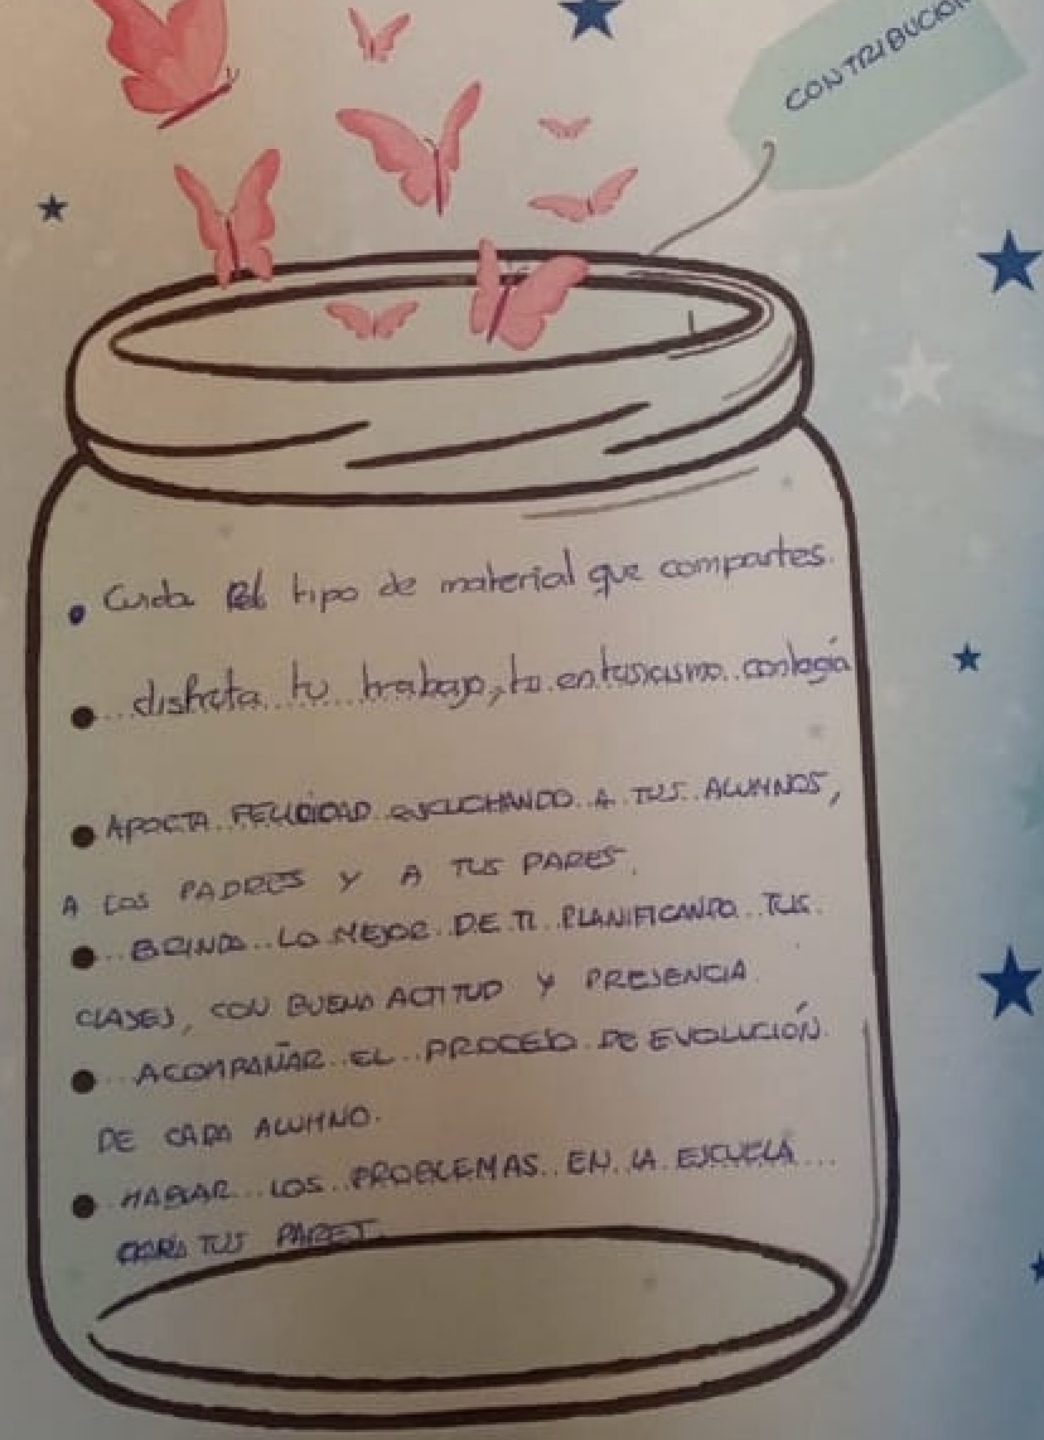 CONTRIBUCION
• Cuida el tipo de material que compartes.
• disfruta tu trabajo, tu entusiasmo contagia
• APORTA FELICIDAD ESCUCHANDO A TUS ALUMNOS,
A LOS PADRES Y A TUS PARES.
• BRINDA LO MEJOR DE TI PLANIFICANDO TUS
CLASES, CON BUENA ACTITUD Y PRESENCIA
• ACOMPAÑAR EL PROCESO DE EVOLUCIÓN
DE CADA ALUMNO.
• HABLAR LOS PROBLEMAS EN LA ESCUELA
TUS PARES.